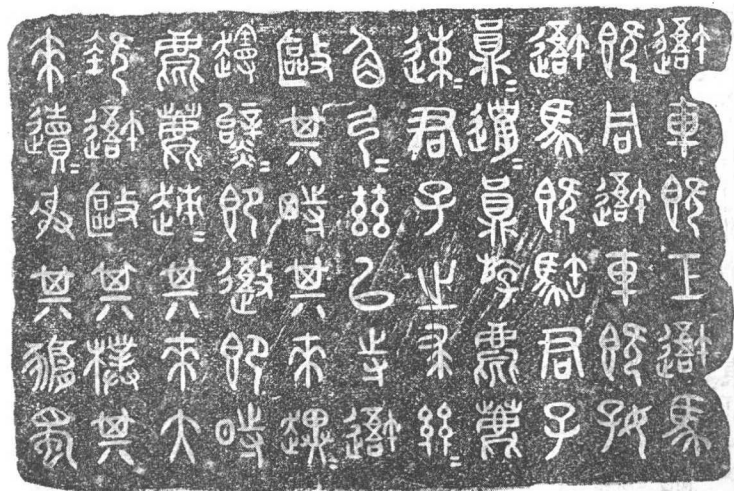 吾車既工吾馬
既同吾車既好
吾馬既駐君子
員=邋=員斿麀鹿
速=君子之求
角弓=茲以寺吾
敺其特其來趩=
即即時
麀鹿趚=其來大
吾敺其樸其
來射其豜蜀